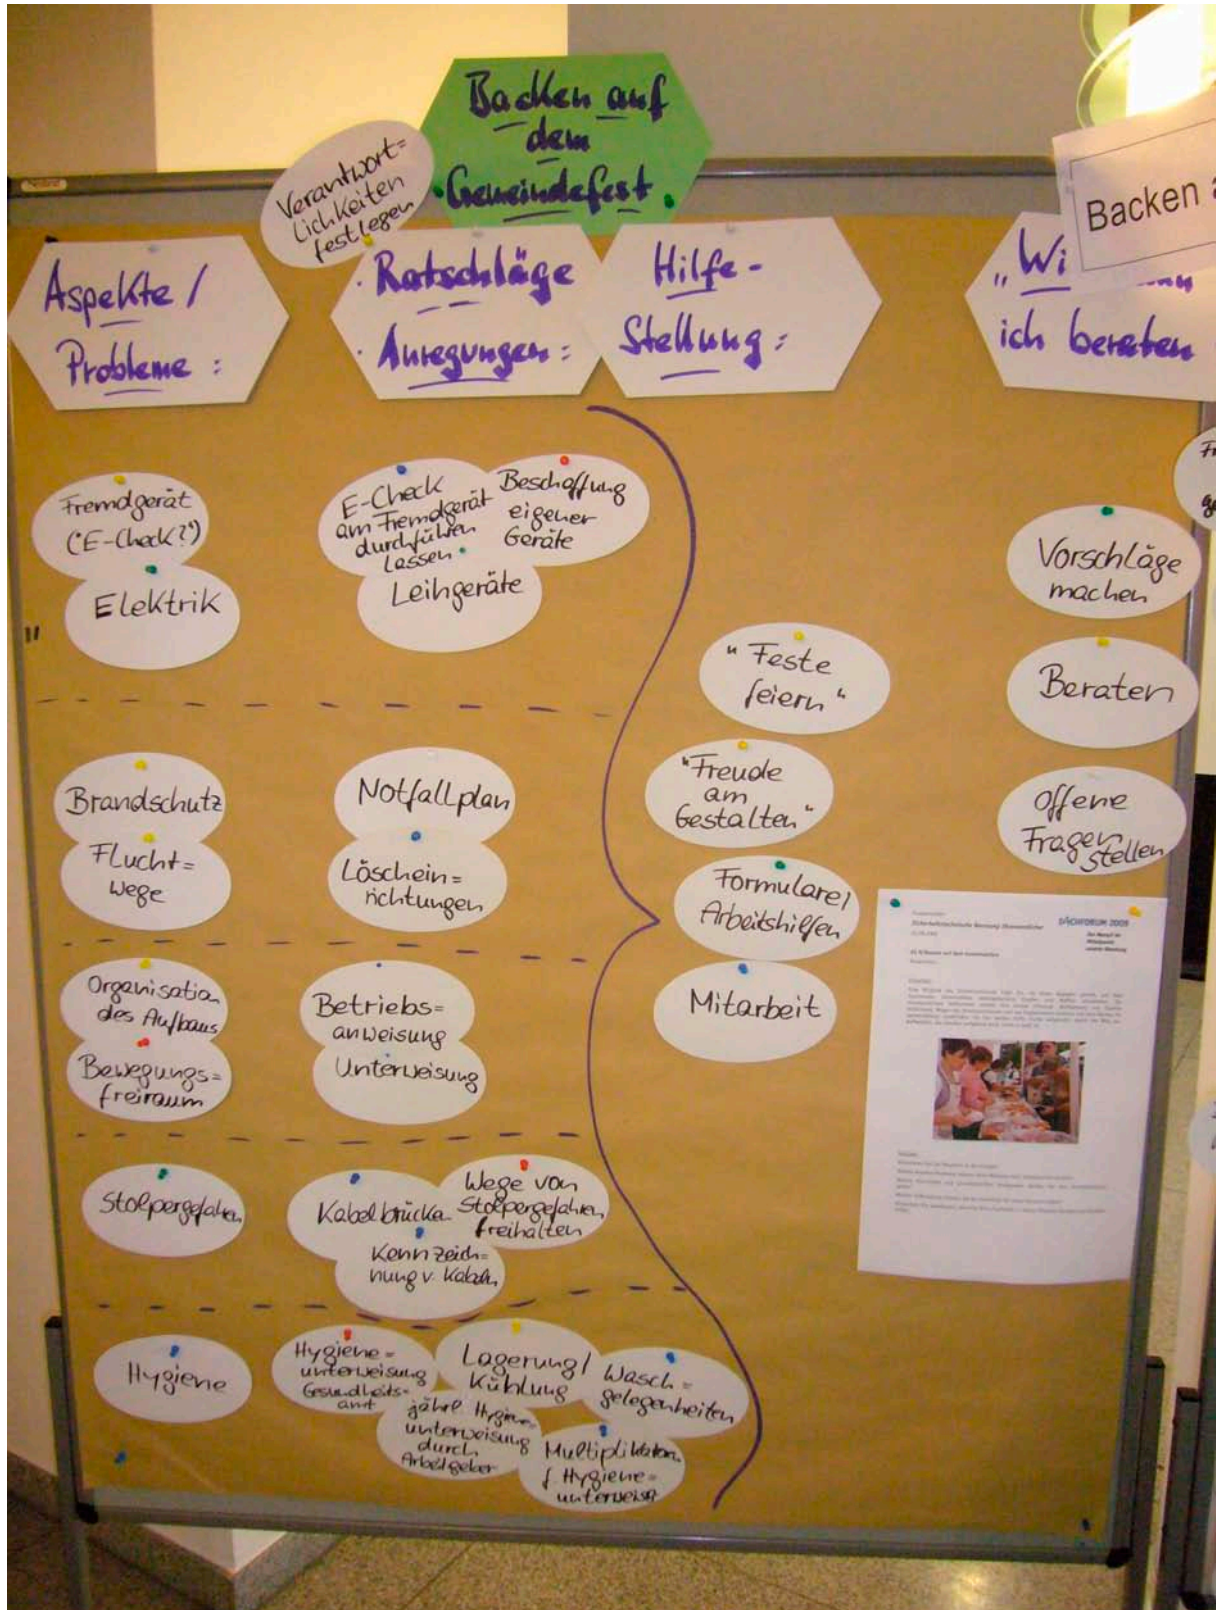 Backen auf
dem
Gemeindefest
Verantwort=
lichkeiten
festlegen
Backen
Aspekte /
Probleme :
· Ratschläge
· Anregungen :
Hilfe-
Stellung :
"Wi
ich beraten
Fremdgerät
("E-Check?")
Elektrik
E-Check
am Fremdgerät
durchführen
lassen
Beschaffung
eigener
Geräte
Leihgeräte
Brandschutz
Flucht=
wege
Notfallplan
Löschein=
richtungen
Organisation
des Aufbaus
Bewegungs=
freiraum
Betriebs=
anweisung
Unterweisung
Stolpergefahren
Kabelbrücken
Wege von
Stolpergefahren
freihalten
Kennzeich=
nung v. Kabeln
Hygiene
Hygiene=
unterweisung
Gesundheits=
amt
Lagerung/
Kühlung
Wasch=
gelegenheiten
jährl Hygiene=
unterweisung
durch
Arbeitgeber
Multiplikatoren
f. Hygiene=
unterweisg
"Feste
feiern"
"Freude
am
Gestalten"
Formulare/
Arbeitshilfen
Mitarbeit
Vorschläge
machen
Beraten
Offene
Fragen
stellen